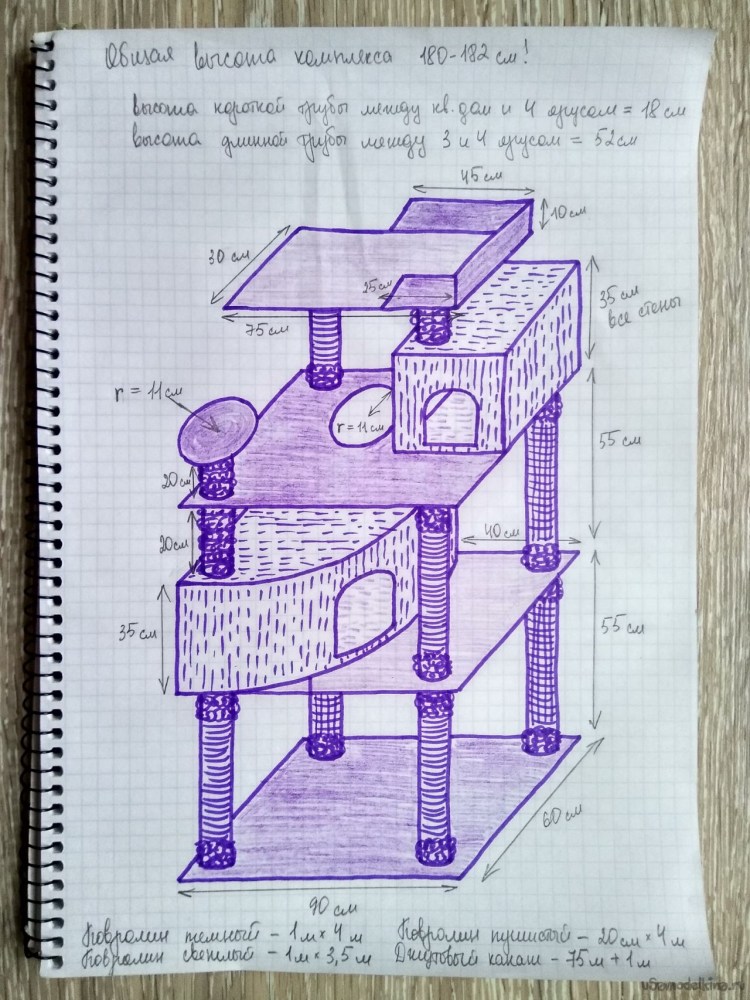 Общая высота комплекса 180-182 см!
высота короткой трубы между кв. дом и 4 ярусом = 18 см
высота длинной трубы между 3 и 4 ярусом = 52 см
45 см
10 см
30 см
25 см
75 см
35 см
все стены
r = 11 см
r = 11 см
55 см
20 см
20 см
40 см
35 см
55 см
60 см
90 см
Ковролин темный - 1 м × 4 м
Ковролин светлый - 1 м × 3,5 м
Ковролин пушистый - 20 см × 4 м
Джутовый канат - 75 м + 1 м
uSamodelkina.ru